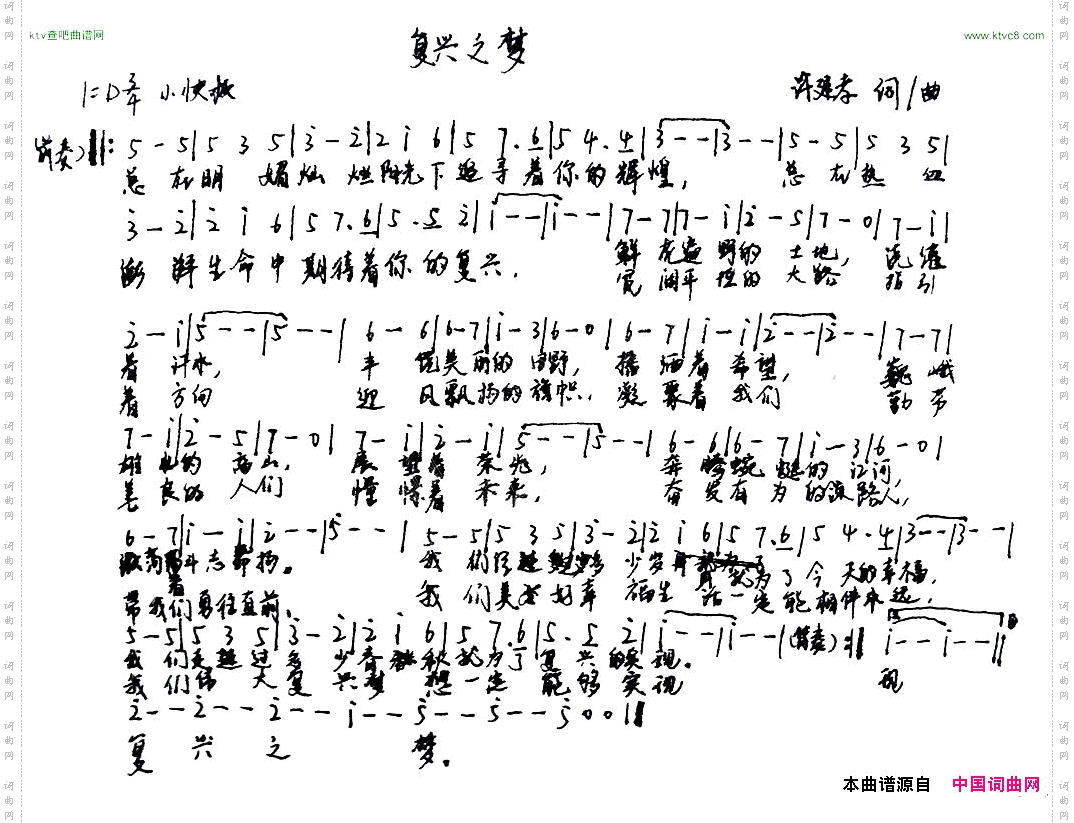 ktv查吧曲谱网
www.ktvc8.com
复兴之梦
1=D 3/4 小快板
许建孝 词/曲
(前奏)‖: 5 - 5|5 3 5|i - 2|2 i 6|5 7. 6|5 4. 4|3 - -|3 - -|5 - 5|5 3 5|
总 在明 媚灿 烂阳光下追寻着你的辉煌, 总 在热 血
i - 2|2 i 6|5 7. 6|5. 5 2|i - -|i - -|7 - 7|7 - i|2 - 5|7 - 0|7 - i|
澎 湃生命中期待着你的复兴, 鲜 花遍 野的 土地, 浇灌
宽 阔平 坦的 大路 指引
2 - i|5 - -|5 - -|6 - 6|6 - 7|i - 3|6 - 0|6 - 7|i - i|2 - -|2 - -|7 - 7|
着 汗水, 丰 饶美丽的 田野, 播 洒着 希望, 巍峨
着 方向 迎 风飘扬的旗帜, 凝 聚着 我们 勤劳
7 - i|2 - 5|7 - 0|7 - i|2 - i|5 - -|5 - -|6 - 6|6 - 7|i - 3|6 - 0|
雄 的 高山, 展 望着 荣光, 奔 腾蜿 蜒的 江河,
善 良的 人们 憧 憬着 未来, 奋 发有 为的 路人,
6 - 7|i - i|2 - -|5 - -|5 - 5|5 3 5|3 - 2|2 i 6|5 7. 6|5 4. 4|3 - -|3 - -|
高 斗志昂扬。 我 们 多 少岁月 为了今 天的幸福,
带我们勇往直前, 我 们美 好幸 福生 活一定能相伴永远,
5 - 5|5 3 5|3 - 2|2 i 6|5 7. 6|5. 5 2|i - -|i - -|(前奏):‖ i - - i - -‖
我 们走 过多 少春 秋 就为了复兴的实现。
我 们伟 大复 兴梦 想一定 能 够 实现 现
2 - - 2 - - 2 - - i - - 5 - - 5 - - 5 0 0‖
复 兴 之 梦。
本曲谱源自 中国词曲网
词曲网